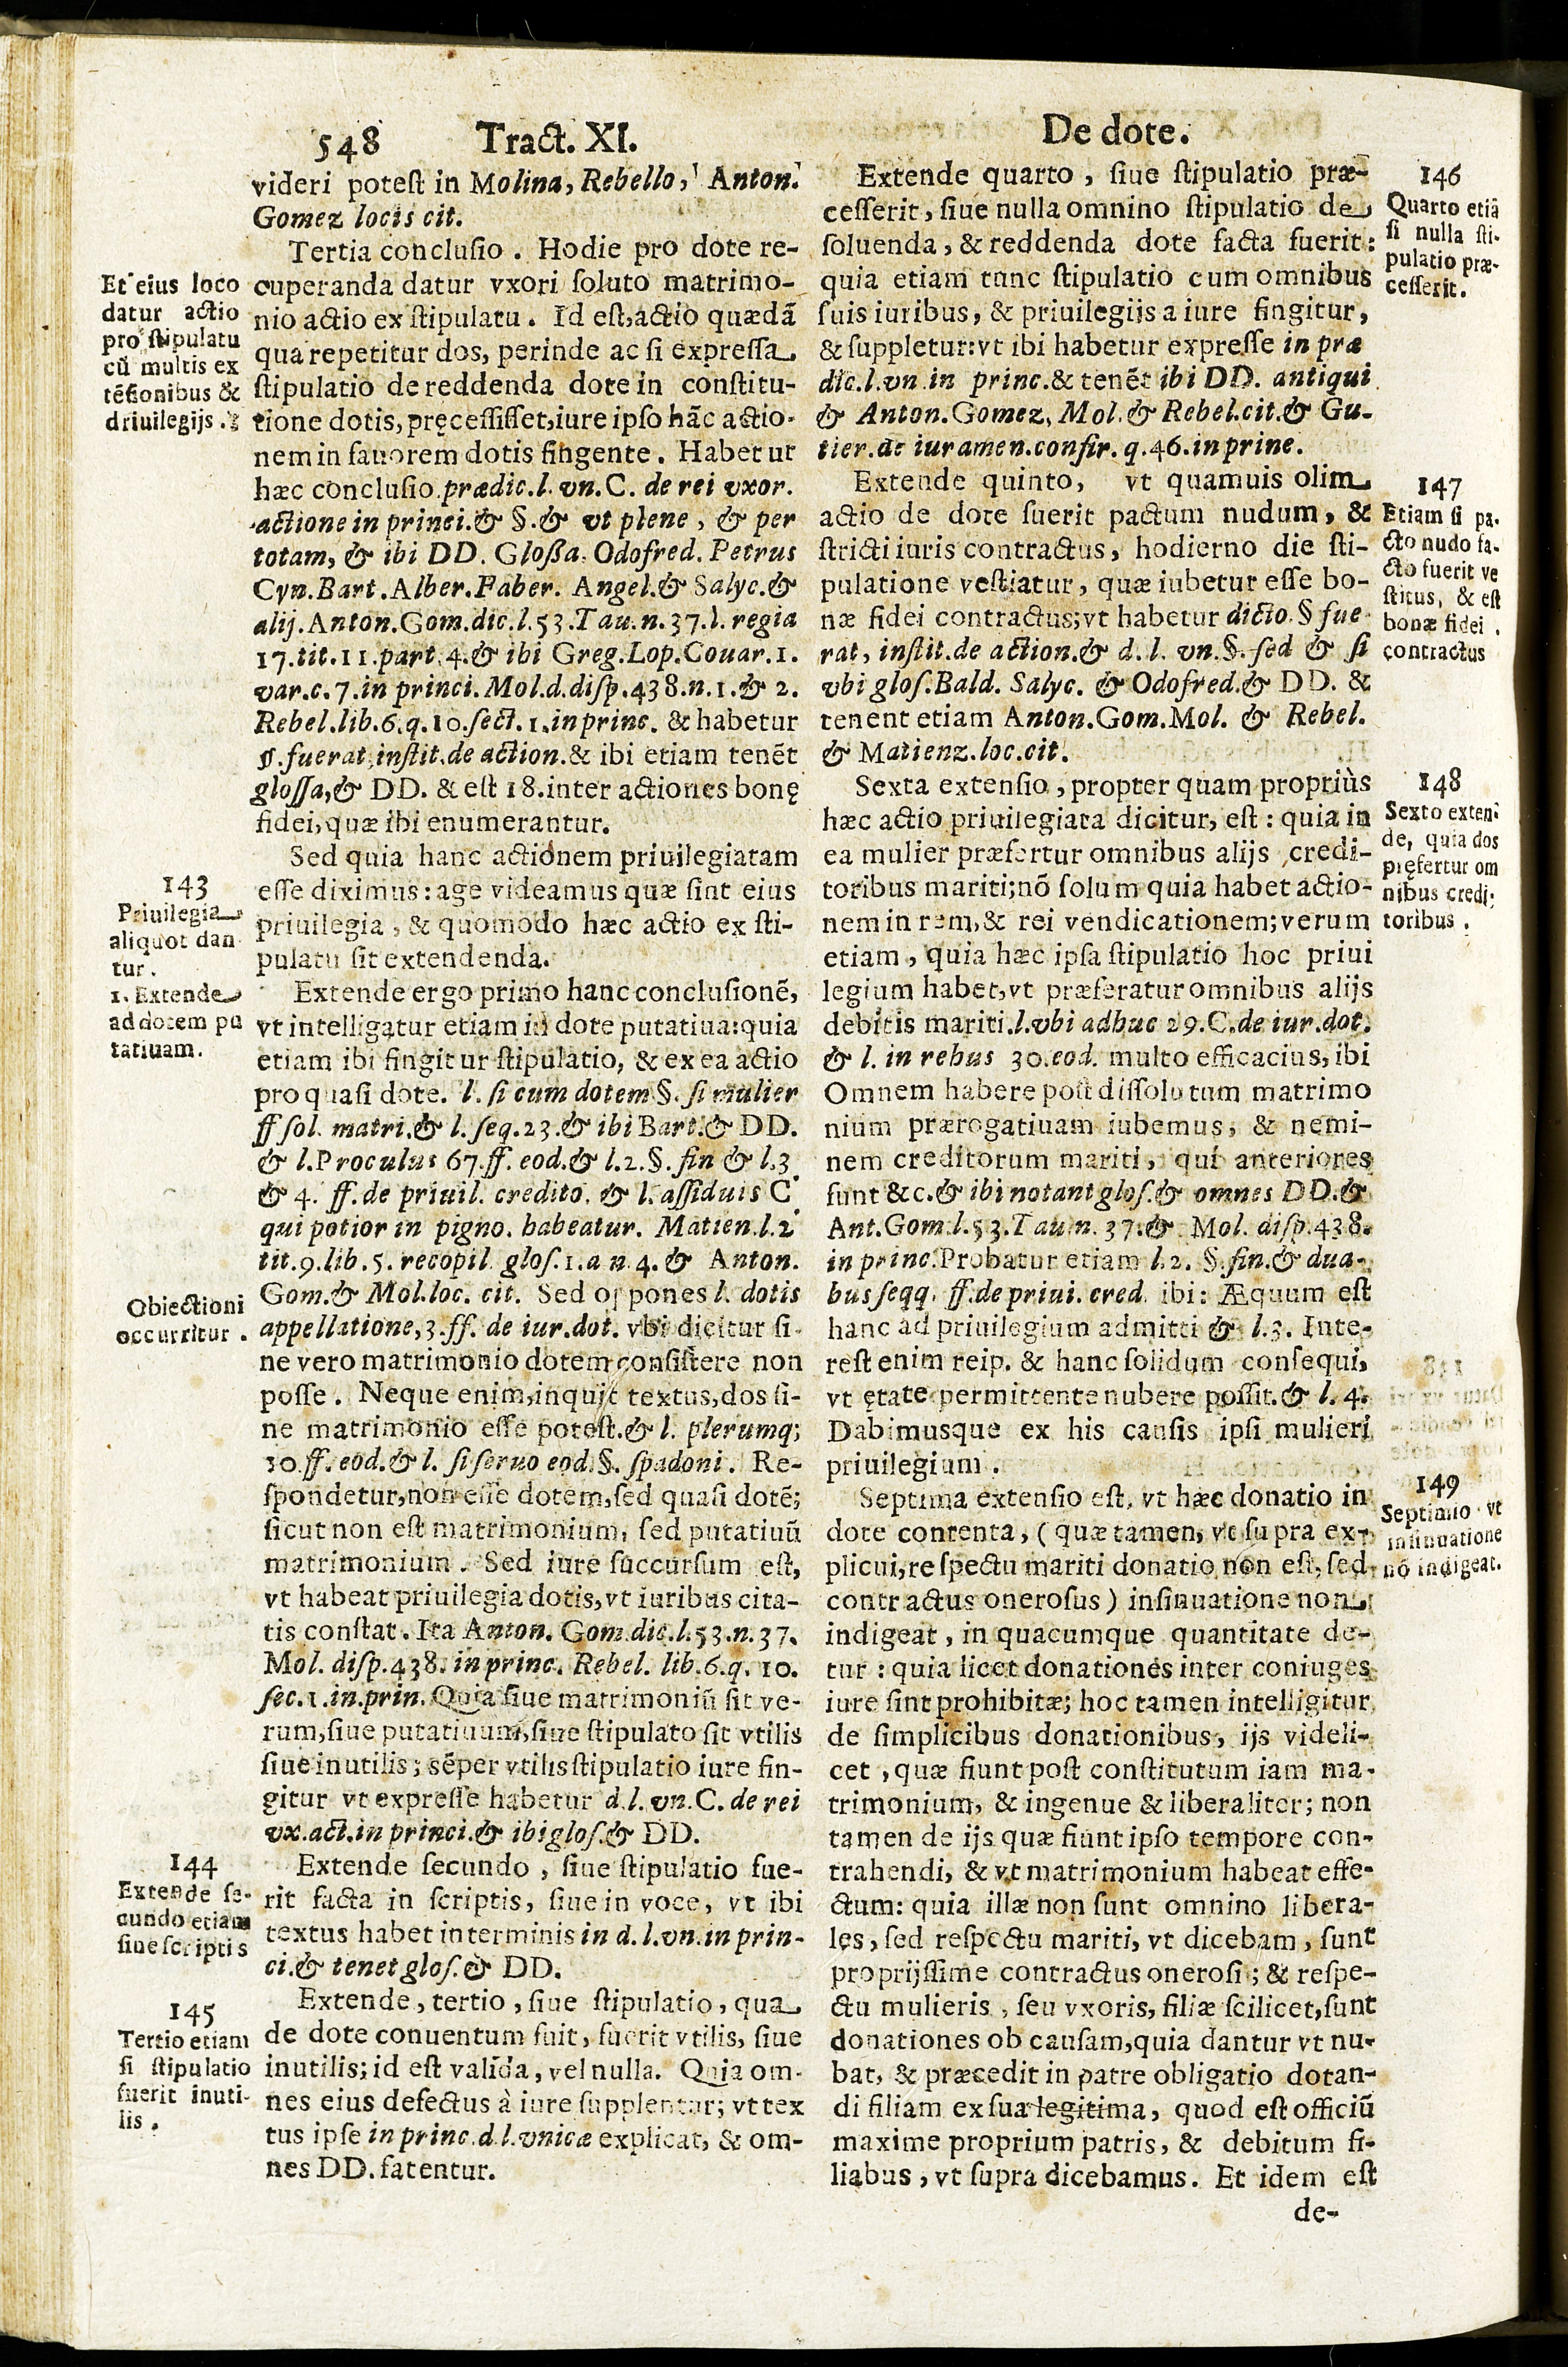 548 Tract. XI. De dote.
videri potest in Molina, Rebello, Anton.
Gomez locis cit.
Tertia conclusio. Hodie pro dote re-
cuperanda datur vxori soluto matrimo-
nio actio ex stipulatu. Id est, actio quædã
qua repetitur dos, perinde ac si expressa
stipulatio de reddenda dote in constitu-
tione dotis, pręcessisset, iure ipso hãc actio-
nem in fauorem dotis fingente. Habetur
hæc conclusio prædic. l. vn. C. de rei vxor.
actione in princi. & §. & vt plene, & per
totam, & ibi DD. Glossa. Odofred. Petrus
Cyn. Bart. Alber. Faber. Angel. & Salyc. &
alij. Anton. Gom. dic. l. 53. Tau. n. 37. l. regia
17. tit. 11. part. 4. & ibi Greg. Lop. Couar. 1.
var. c. 7. in princi. Mol. d. disp. 438. n. 1. & 2.
Rebel. lib. 6. q. 10. sect. 1. in princ. & habetur
§. fuerat, instit. de action. & ibi etiam tenẽt
glossa, & DD. & est 18. inter actiones bonę
fidei, quæ ibi enumerantur.
Sed quia hanc actionem priuilegiatam
esse diximus: age videamus quæ sint eius
priuilegia, & quomodo hæc actio ex sti-
pulatu sit extendenda.
Extende ergo primo hanc conclusionẽ,
vt intelligatur etiam in dote putatiua: quia
etiam ibi fingitur stipulatio, & ex ea actio
pro quasi dote. l. si cum dotem §. si mulier
ff sol. matri. & l. seq. 23. & ibi Bart. & DD.
& l. Proculus 67. ff. eod. & l. 2. §. fin & l. 3
& 4. ff. de priuil. credito. & l. assiduis C.
qui potior in pigno. habeatur. Matien. l. 2
tit. 9. lib. 5. recopil. glos. 1. a n. 4. & Anton.
Gom. & Mol. loc. cit. Sed oppones l. dotis
appellatione, 3. ff. de iur. dot. vbi dicitur si-
ne vero matrimonio dotem consistere non
posse. Neque enim, inquit textus, dos si-
ne matrimonio esse potest. & l. plerumq;
10. ff. eod. & l. si seruo eod. §. spadoni. Re-
spondetur, non esse dotem, sed quasi dotẽ;
sicut non est matrimonium, sed putatiuũ
matrimonium. Sed iure succursum est,
vt habeat priuilegia dotis, vt iuribus cita-
tis constat. Ita Anton. Gom. dic. l. 53. n. 37.
Mol. disp. 438. in princ. Rebel. lib. 6. q. 10.
sec. 1. in. prin. Quia siue matrimoniũ sit ve-
rum, siue putatiuum, siue stipulato sit vtilis
siue inutilis; sẽper vtilis stipulatio iure fin-
gitur vt expresse habetur d. l. vn. C. de rei
vx. act. in princi. & ibi glos. & DD.
Extende secundo, siue stipulatio fue-
rit facta in scriptis, siue in voce, vt ibi
textus habet in terminis in d. l. vn. in prin-
ci. & tenet glos. & DD.
Extende, tertio, siue stipulatio, qua
de dote conuentum fuit, fuerit vtilis, siue
inutilis; id est valida, vel nulla. Quia om-
nes eius defectus à iure supplentur; vt tex
tus ipse in princ. d. l. vnicæ explicat, & om-
nes DD. fatentur.
Et eius loco
datur actio
pro stipulatu
cũ multis ex
tẽsionibus &
driuilegijs.
143
Priuilegia
aliquot dan
tur.
1. Extende
ad dotem pu
tatiuam.
Obiectioni
occurritur.
144
Extende se-
cundo etiam
siue scriptis
145
Tertio etiam
si stipulatio
fuerit inuti-
lis.
Extende quarto, siue stipulatio præ-
cesserit, siue nulla omnino stipulatio de
soluenda, & reddenda dote facta fuerit:
quia etiam tunc stipulatio cum omnibus
suis iuribus, & priuilegijs a iure fingitur,
& suppletur: vt ibi habetur expresse in præ
dic. l. vn in princ. & tenẽt ibi DD. antiqui
& Anton. Gomez, Mol. & Rebel. cit. & Gu-
tier. de iuramen. confir. q. 46. in prine.
Extende quinto, vt quamuis olim
actio de dote fuerit pactum nudum, &
stricti iuris contractus, hodierno die sti-
pulatione vestiatur, quæ iubetur esse bo-
næ fidei contractus; vt habetur dicto. § fue
rat, instit. de action. & d. l. vn. §. sed & si
vbi glos. Bald. Salyc. & Odofred. & DD. &
tenent etiam Anton. Gom. Mol. & Rebel.
& Matienz. loc. cit.
Sexta extensio, propter quam propriùs
hæc actio priuilegiata dicitur, est: quia in
ea mulier præfertur omnibus alijs credi-
toribus mariti; nõ solum quia habet actio-
nem in rem, & rei vendicationem; verum
etiam, quia hæc ipsa stipulatio hoc priui
legium habet, vt præferatur omnibus alijs
debitis mariti. l. vbi adhuc 29. C. de iur. dot.
& l. in rebus 30. eod. multo efficacius, ibi
Omnem habere post dissolutum matrimo
nium prærogatiuam iubemus, & nemi-
nem creditorum mariti, qui anteriores
sunt &c. & ibi notant glos. & omnes DD. &
Ant. Gom. l. 53. Tau. n. 37. & Mol. disp. 438.
in princ. Probatur etiam l. 2. §. fin. & dua-
bus seqq. ff. de priui. cred. ibi: Æquum est
hanc ad priuilegium admitti & l. 3. Inte-
rest enim reip. & hanc solidum consequi,
vt ętate permittente nubere possit. & l. 4.
Dabimusque ex his causis ipsi mulieri
priuilegium.
Septima extensio est, vt hæc donatio in
dote contenta, (quæ tamen, vt supra ex-
plicui, respectu mariti donatio non est, sed
contractus onerosus) insinuatione non
indigeat, in quacumque quantitate de-
tur: quia licet donationes inter coniuges
iure sint prohibitæ; hoc tamen intelligitur
de simplicibus donationibus, ijs videli-
cet, quæ fiunt post constitutum iam ma-
trimonium, & ingenue & liberaliter; non
tamen de ijs quæ fiunt ipso tempore con-
trahendi, & vt matrimonium habeat effe-
ctum: quia illæ non sunt omnino libera-
les, sed respectu mariti, vt dicebam, sunt
proprijssime contractus onerosi; & respe-
ctu mulieris, seu vxoris, filiæ scilicet, sunt
donationes ob causam, quia dantur vt nu-
bat, & præcedit in patre obligatio dotan-
di filiam ex sua legitima, quod est officiũ
maxime proprium patris, & debitum fi-
liabus, vt supra dicebamus. Et idem est
de-
146
Quarto etiã
si nulla sti-
pulatio præ-
cesserit.
147
Etiam si pa-
cto nudo fa-
cto fuerit ve
stitus, & est
bonæ fidei
contractus
148
Sexto exten-
de, quia dos
pręfertur om
nibus credi-
toribus.
149
Septimo vt
insinuatione
nõ indigeat.